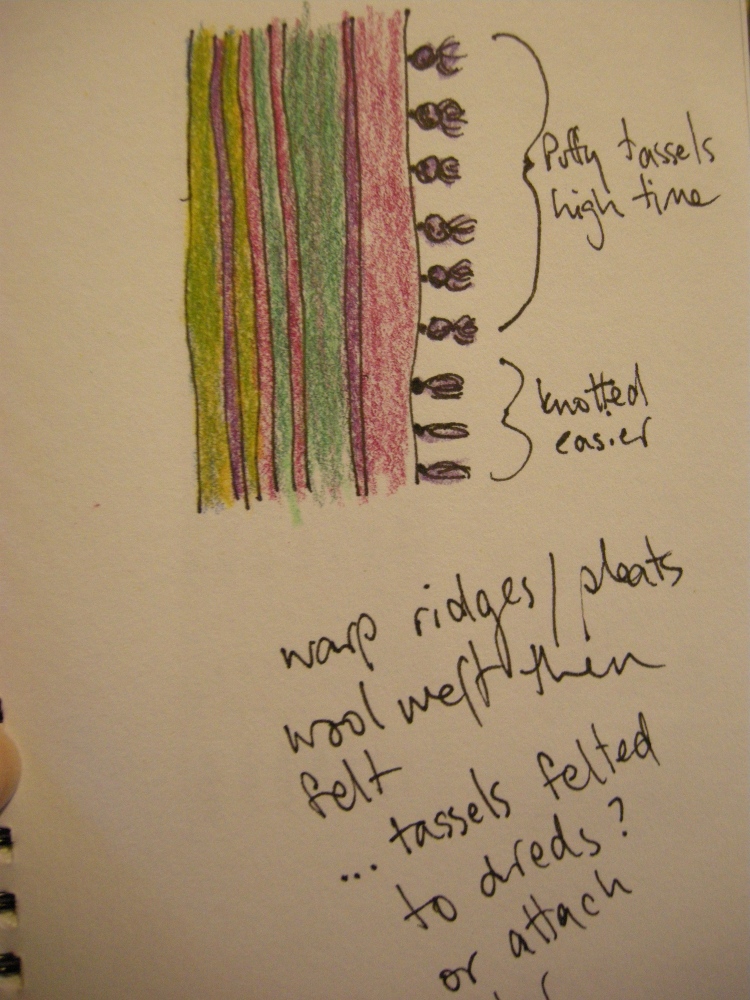 Puffy tassels
high time
knotted
easier
warp ridges / pleats
wool weft then
felt
... tassels felted
to dreds?
or attach